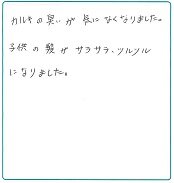 カルキの臭いが気になくなりました。
子供の髪がサラサラ、ツルツル
になりました。